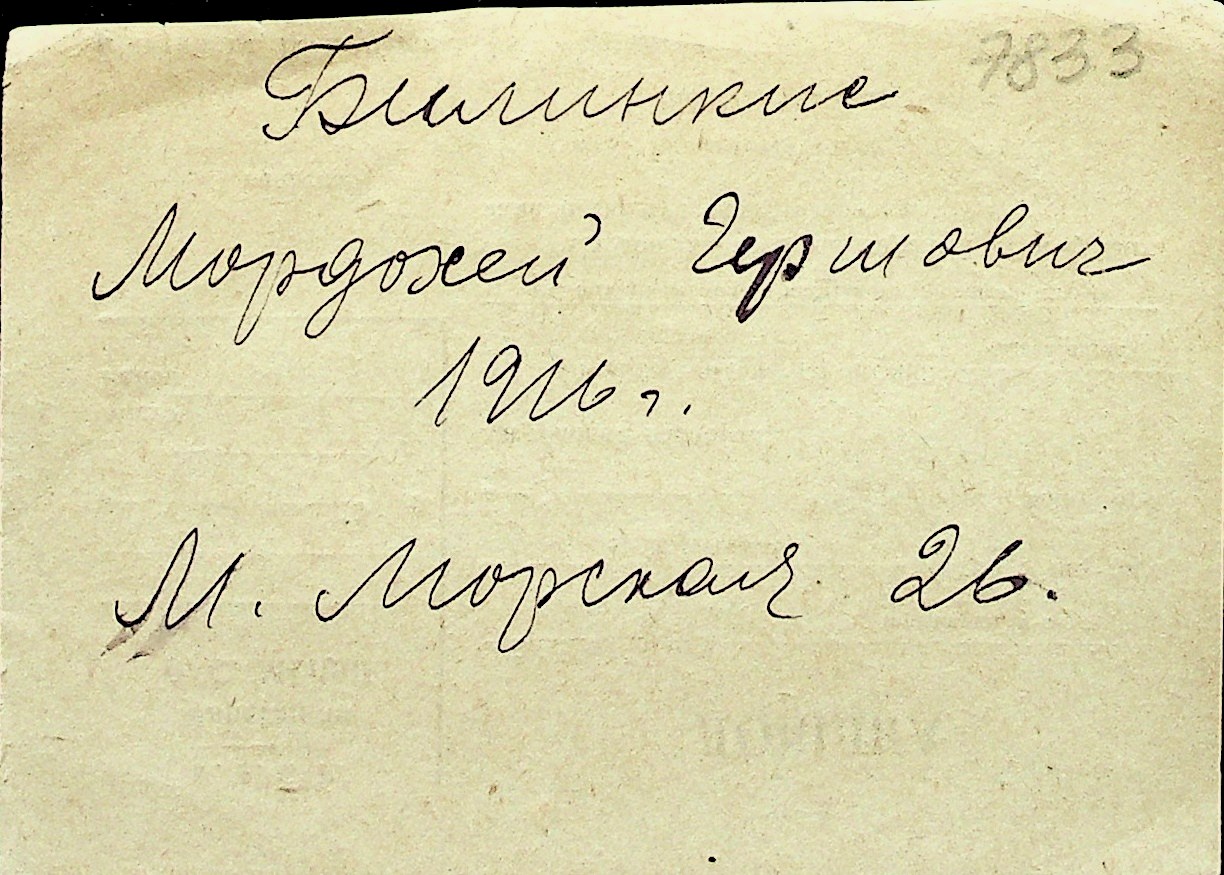 7833
Билинкис
Мордохей Гершович
1916 г.
М. Морская 26.